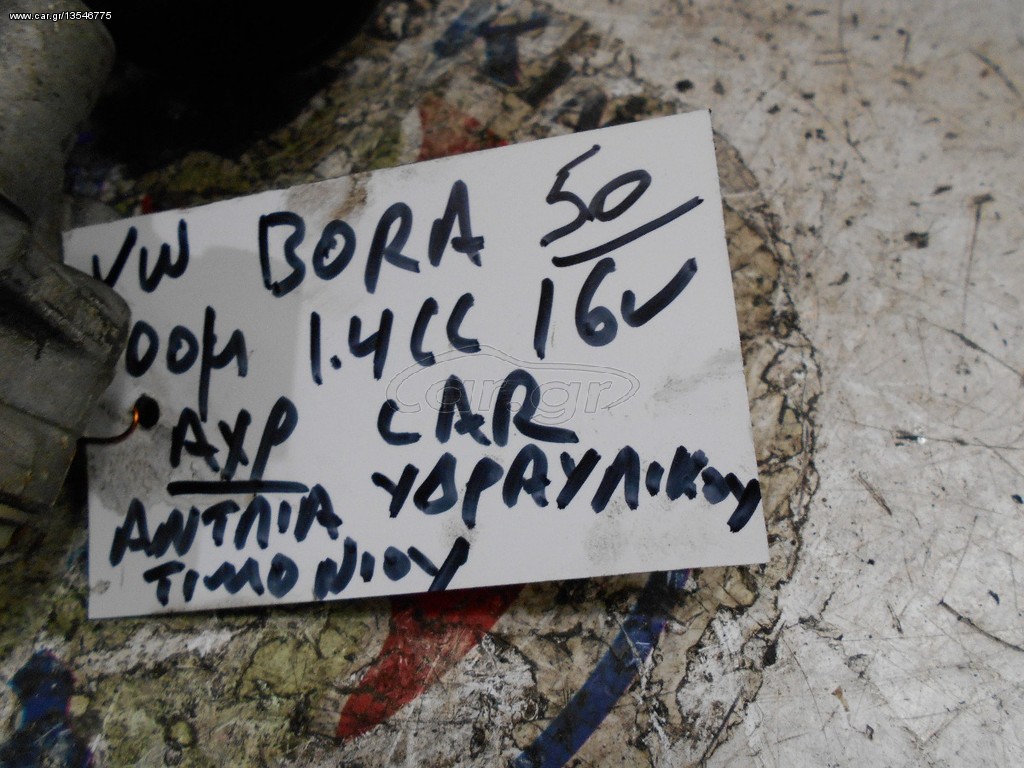 www.car.gr/13546775
VW BORA 50
00μ 1.4CC 16V
car.gr
AXP CAR
ΑΝΤΛΙΑ ΥΔΡΑΥΛΙΚΟΥ
ΤΙΜΟΝΙΟΥ